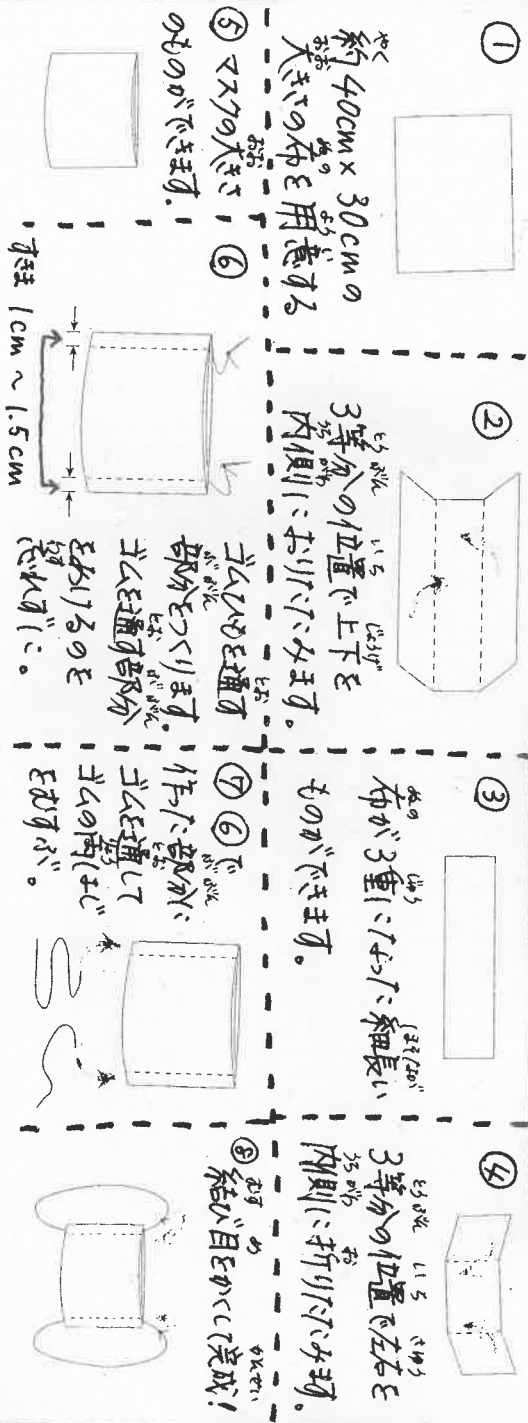 ①
約40cm×30cmの
大きさの布を用意する
②
3等分の位置で上下を
内側におりたたみます。
③
布が3重になった細長い
ものができます。
④
3等分の位置で左右を
内側に折りたたみます。
⑤ マスクの大きさ
のものができます。
⑥
すきま 1cm～1.5cm
ゴムひもを通す
部分をつくります。
ゴムを通す部分
をあけるのを
忘れずに。
⑦ ⑥で
作った部分に
ゴムを通して
ゴムの両はじ
をむすぶ。
⑧
結び目をかくして完成！